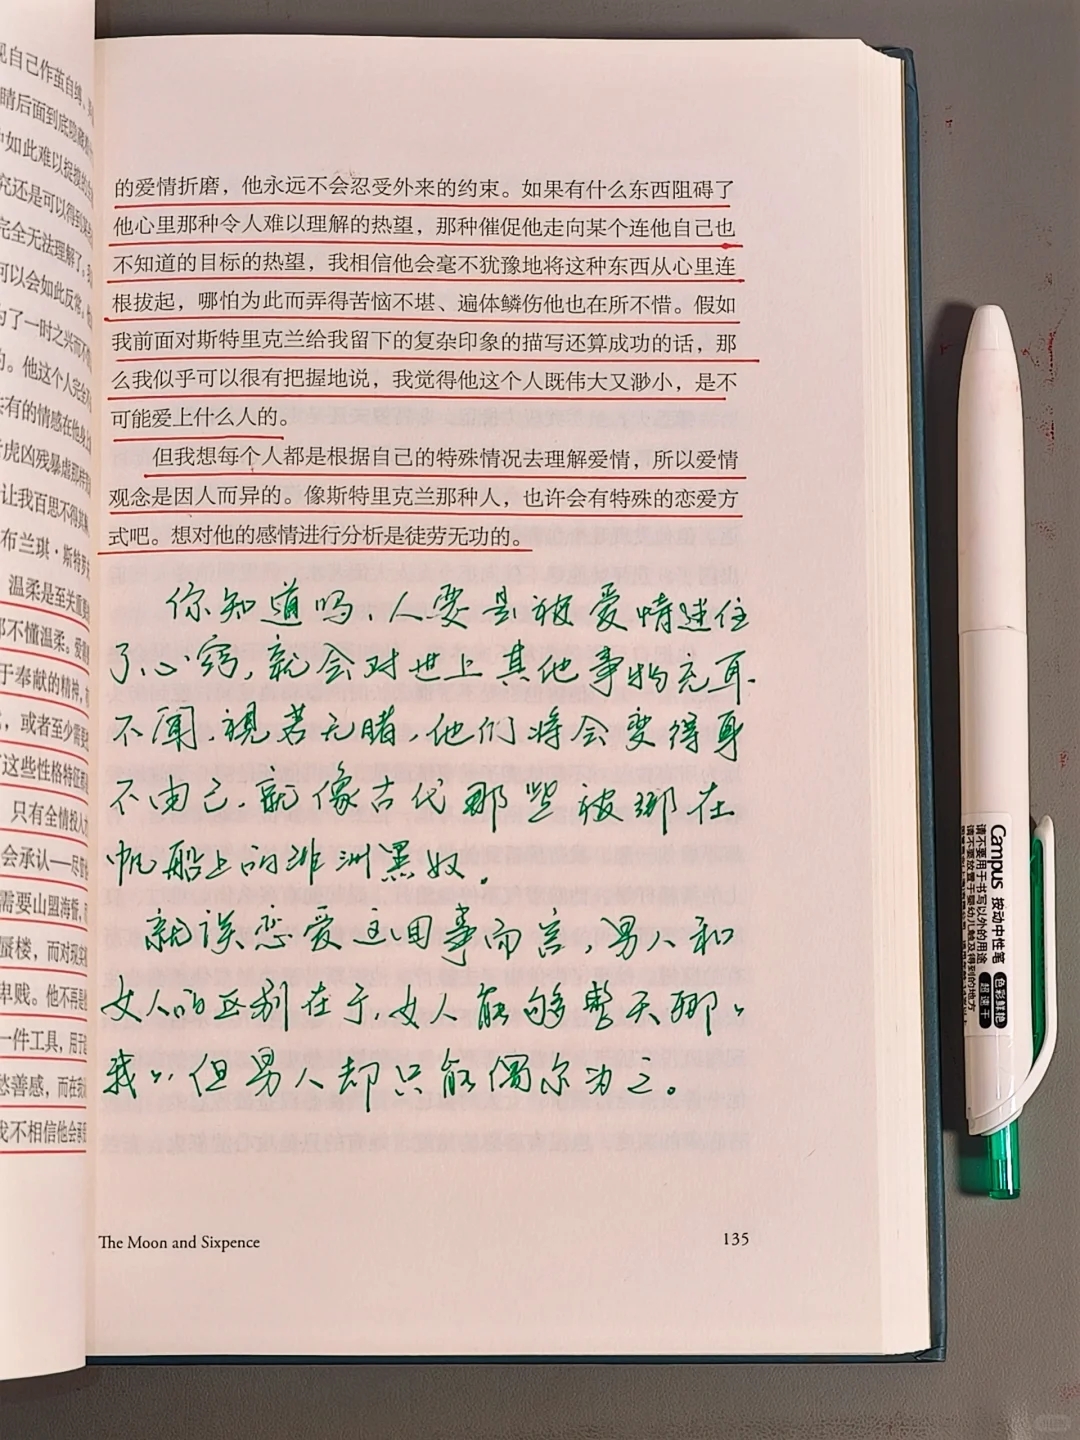 现自己作茧自缚、
睛后面到底隐藏着
中如此难以捉摸的
究还是可以得到某
完全无法理解了。我
可以会如此反常,
为了一时之兴而不
的。他这个人完全
共有的情感在他身上
虎凶残暴虐那样
让我百思不得其解
布兰琪·斯特罗夫
温柔是至关重要
却不懂温柔。爱需
于奉献的精神,
,或者至少需要
这些性格特征
只有全情投入
会承认——尽管
需要山盟海誓,
蜃楼,而对现实
卑贱。他不再是
一件工具,用于
愁善感,而在我
我不相信他会承
的爱情折磨,他永远不会忍受外来的约束。如果有什么东西阻碍了
他心里那种令人难以理解的热望,那种催促他走向某个连他自己也
不知道的目标的热望,我相信他会毫不犹豫地将这种东西从心里连
根拔起,哪怕为此而弄得苦恼不堪、遍体鳞伤他也在所不惜。假如
我前面对斯特里克兰给我留下的复杂印象的描写还算成功的话,那
么我似乎可以很有把握地说,我觉得他这个人既伟大又渺小,是不
可能爱上什么人的。
但我想每个人都是根据自己的特殊情况去理解爱情,所以爱情
观念是因人而异的。像斯特里克兰那种人,也许会有特殊的恋爱方
式吧。想对他的感情进行分析是徒劳无功的。
你知道吗,人要是被爱情迷住
了心窍,就会对世上其他事物充耳
不闻,视若无睹,他们将会变得身
不由己,就像古代那些被绑在
帆船上的非洲黑奴。
就谈恋爱这回事而言,男人和
女人的区别在于,女人能够整天卿卿
我我,但男人却只能偶尔为之。
The Moon and Sixpence
135
Campus 按动中性笔
请不要用于书写以外的用途。
请不要放置于婴幼儿触及得到的地方
色彩鲜艳
超速干